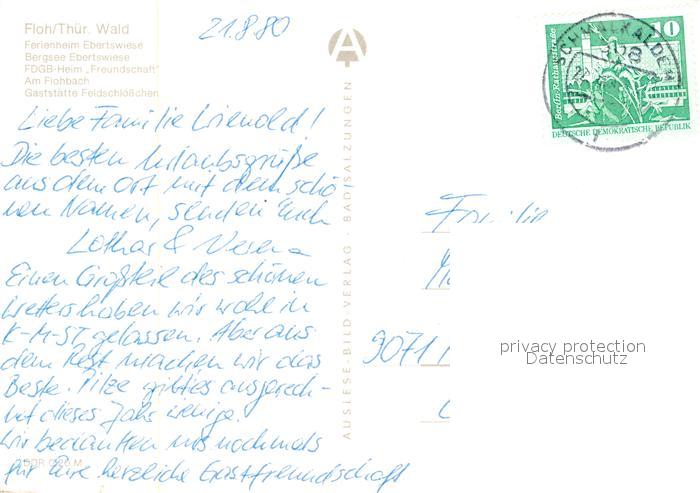 Floh/Thür. Wald
Ferienheim Ebertswiese
Bergsee Ebertswiese
FDGB-Heim „Freundschaft"
Am Flohbach
Gaststätte Feldschlößchen
21.8.80
Liebe Familie Wienold!
Die besten Urlaubsgrüße
aus dem Ort mit dem schö-
nen Namen, senden Euch
Lothar & Verena
Einen Großteil des schönen
Wetters haben wir wohl in
K-M-St gelassen. Aber aus
dem Rest machen wir das
Beste. Pilze gibt's ausgerech-
net dieses Jahr wenige.
Wir bedankten uns nochmals
für Eure herzliche Gastfreundschaft
DDR 0,20 M
A
AUSLESE-BILD-VERLAG · BAD SALZUNGEN
10
Berlin, Rathausstraße
DEUTSCHE DEMOKRATISCHE REPUBLIK
SCHMALKALDEN
Familie
9071
privacy protection
Datenschutz